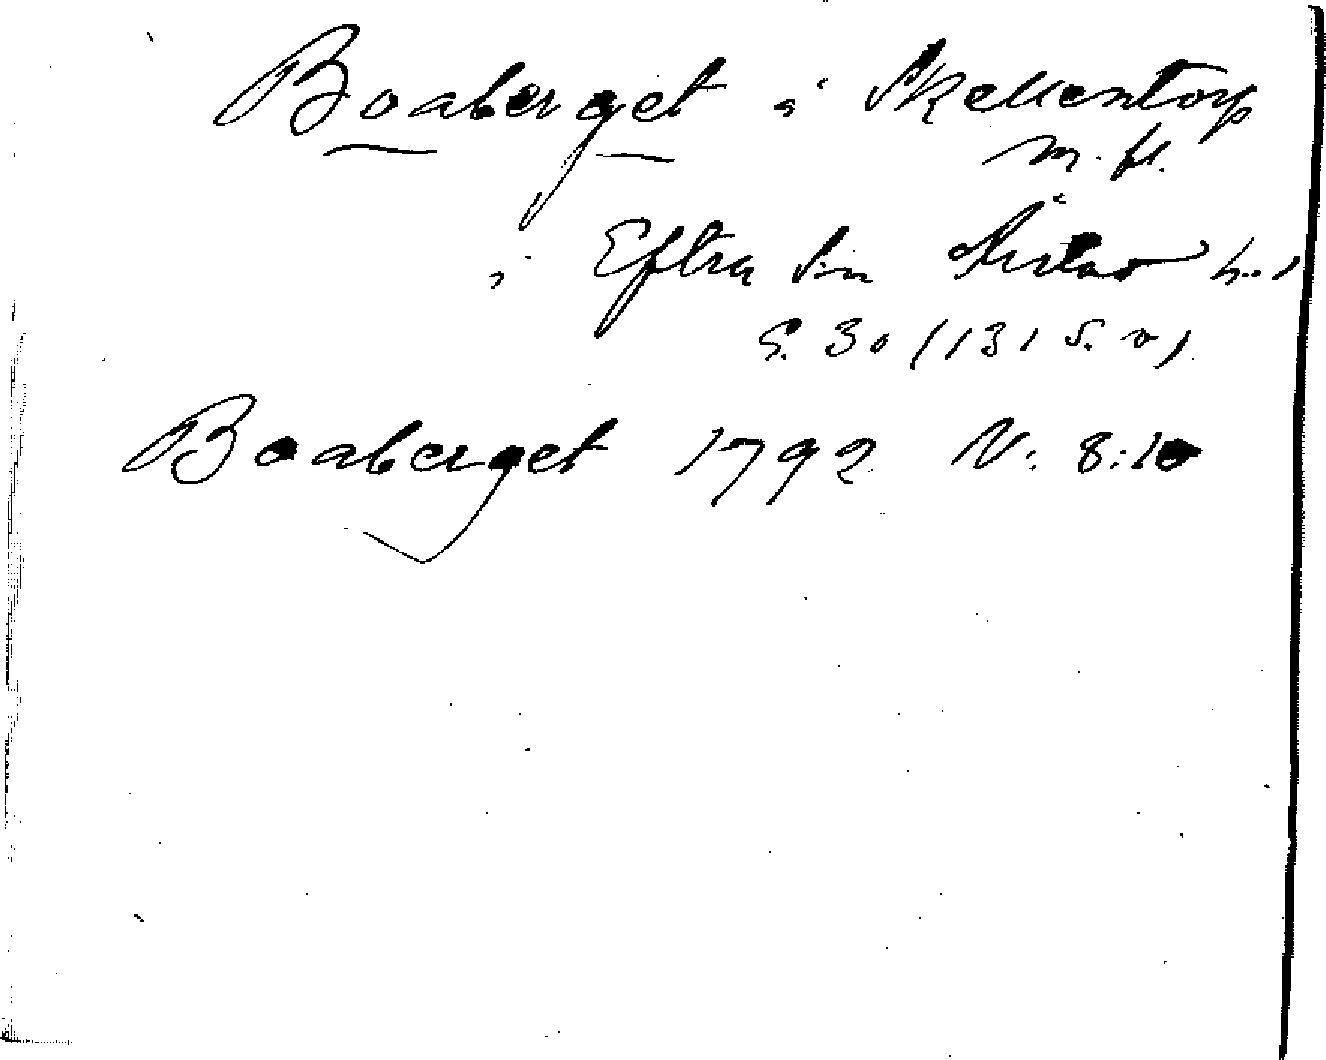 Boaberget å Skellentorp
m. fl.
i Eftra sn Årstad h.,
G. 30 (131 S. v)
Boaberget 1792 N: 8:10